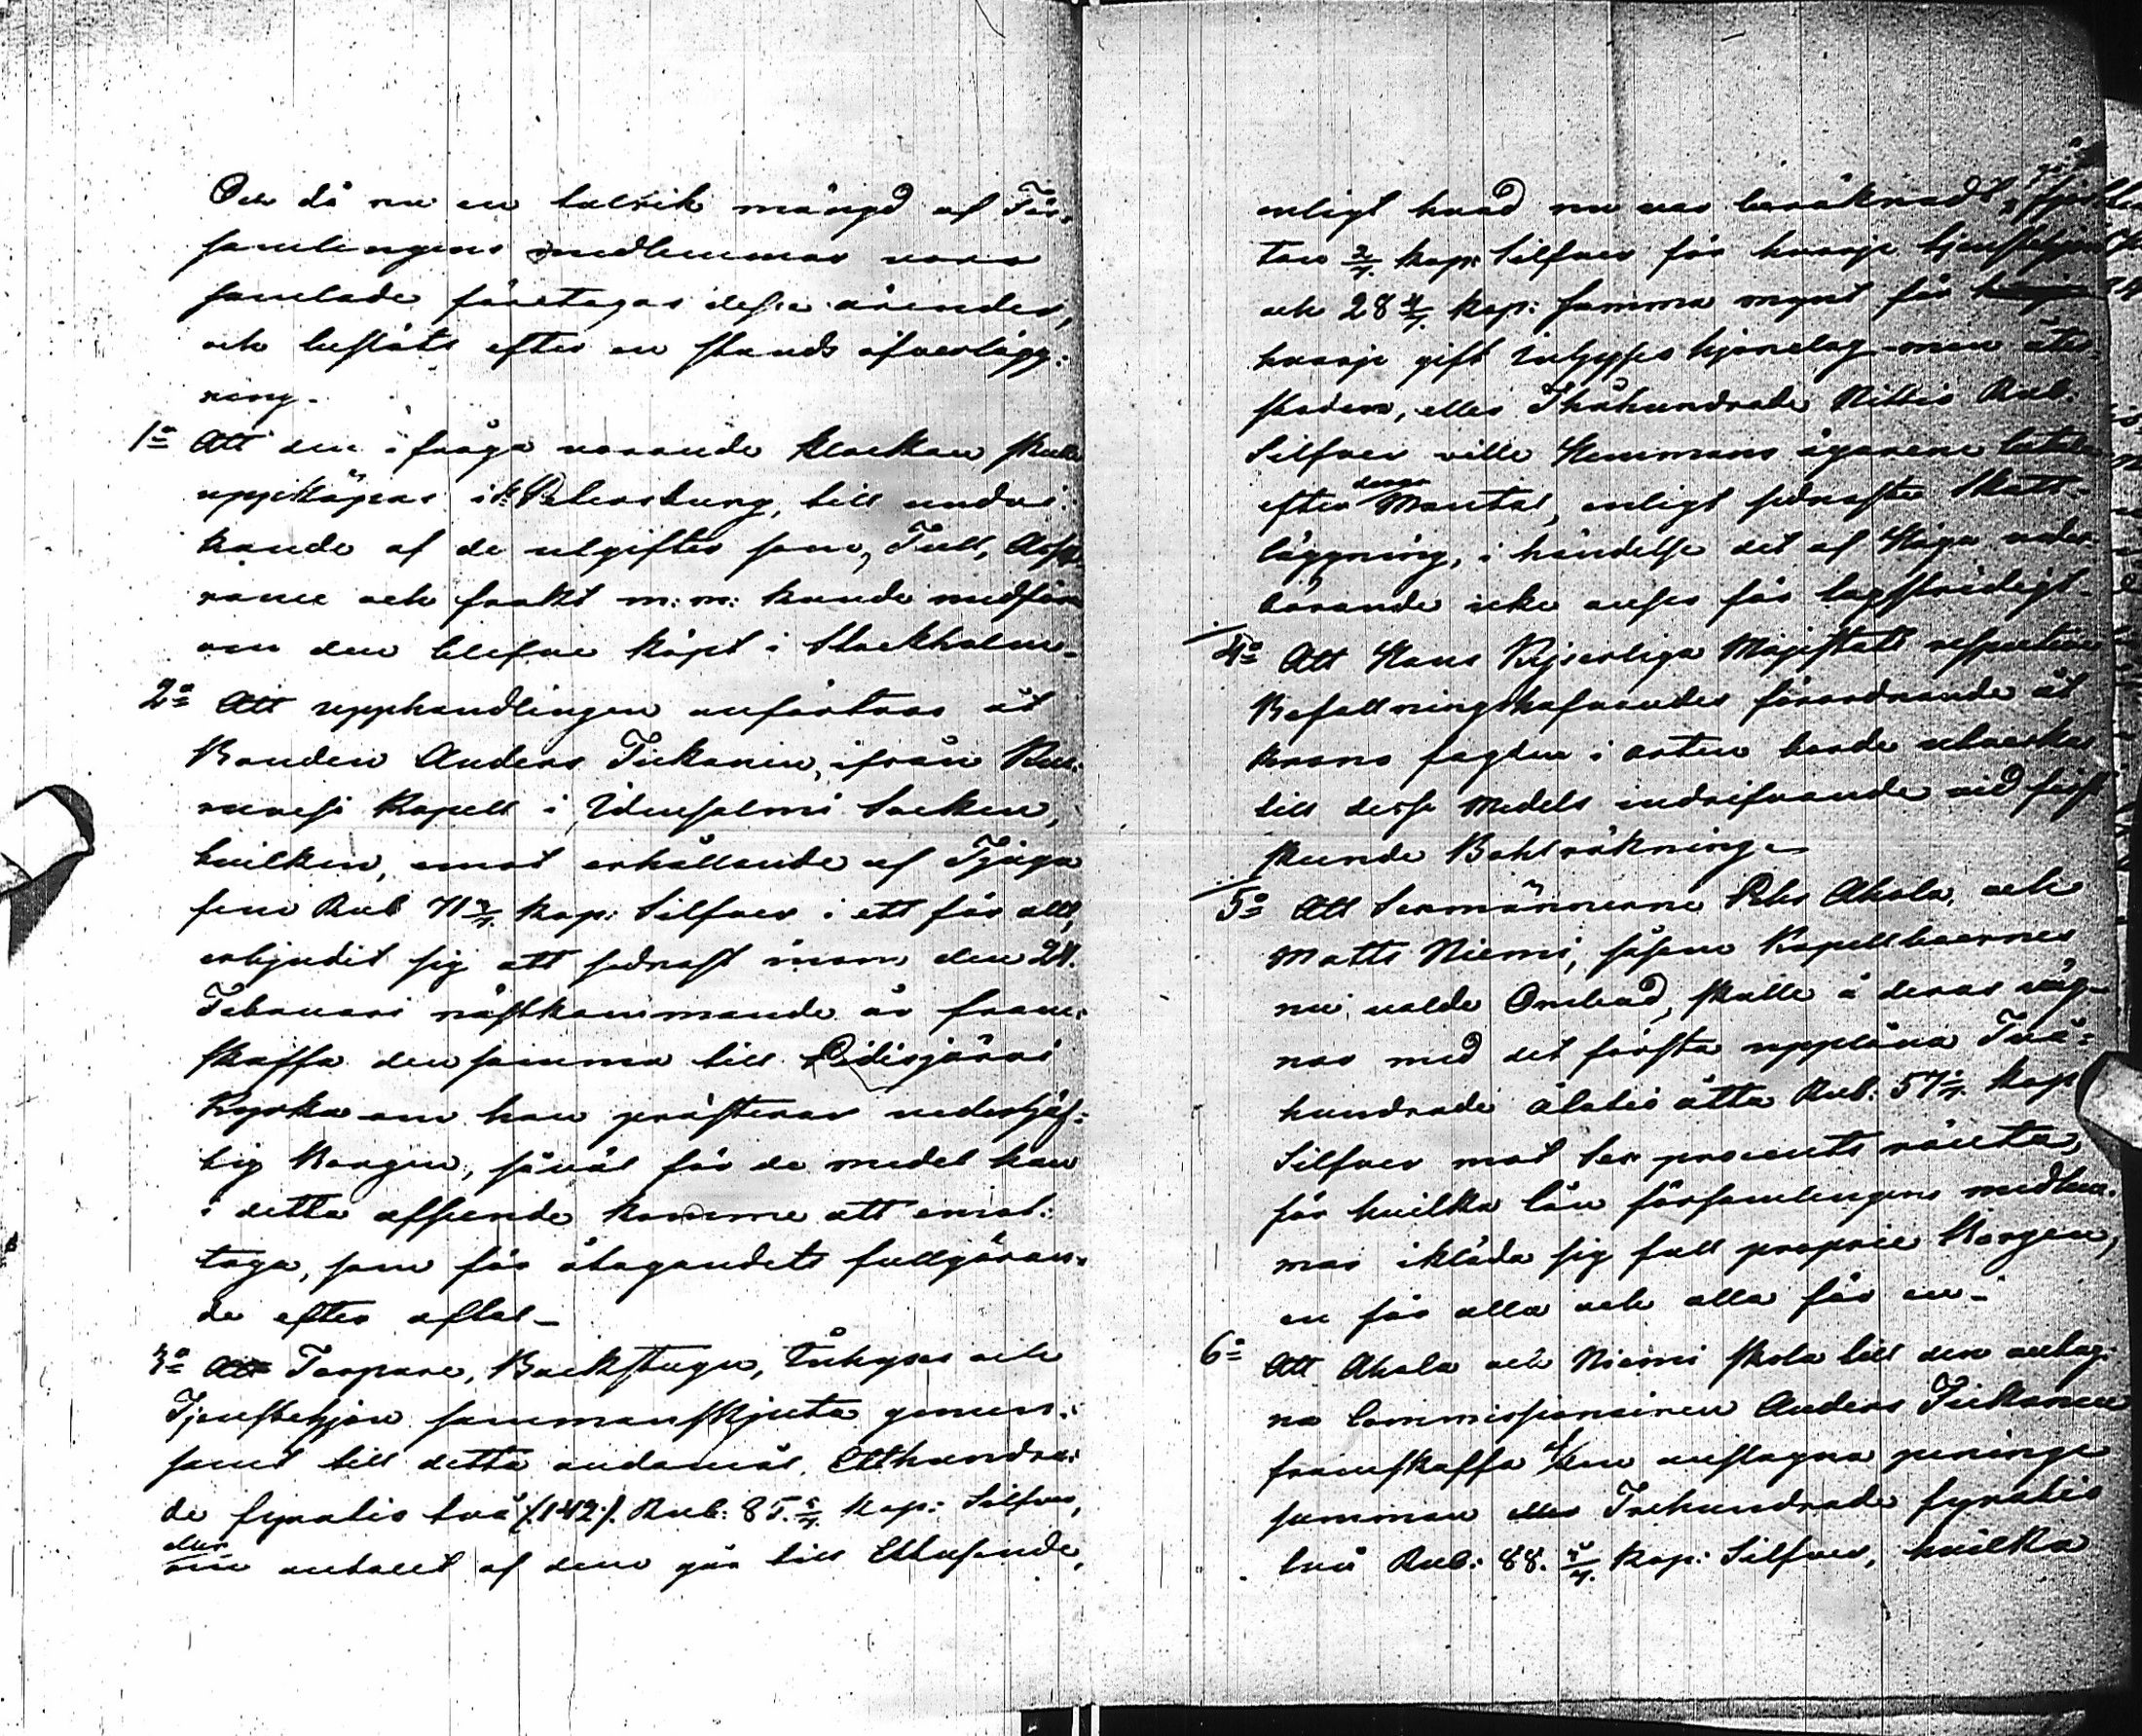 Och då nu en talrik mängd af För-
samlingens medlemmar voro
samlade företogas dessa ärender,
och beslöts efter en stunds öfverlägg:
ning.
1o Att den i fråga varande klockan skulle
uppköpas i St Petersburg, till undvi:
kande af de utgifter som, Tull, Assu
rance och frakt m: m: kunde medföra
om den blefve köpt i Stockholm-
2o Att upphandlingen anförtros åt
Bonden Anders Tickanen, ifrån
Kapell i Idensalmi Socken,
hvilken, emot erhållande af Tjugu
fem Rub 71 3/7 kop: Silfver i ett för allt,
erbjudit sig att sednast inom den 24.
Februari nästkommande år fram:
skaffa den samma till Pidisjärvi
Kyrka om han präster ar vederhäf:
tig Borgen, såväl för de medel han
i detta afseende komme att emot:
taga, som för åtagandets fullgöran:
de efter aftal-
3o Att Torpare, Backstugu, Inhyses och
Tjenstehjon sammanskjuta gemen:
samt till detta ändamål, Etthundra:
de fyratio två (:142:) Rub: 85. 5/7 kop: Silfver,
der antalet af dem går till Ettusende,
enligt hvad nu var beräknadt,
ton 2/7 kop: Silfver för hvarje tjenstehjon
och 28 4/7 kop: samma mynt för
hvarje gift Inhyses hjonelag men åter-
stoden, eller Tvåhundrade Nittio Rub:
Silfver ville Hemmans ägarene betala
efter deras Mantal, enligt sednaste Skatt-
läggning, i händelse det af Höga veder-
börande icke anses för lagstridigt-
4o Att Hans Kejserliga Majestäts respective
Befallningshafvandes förordnande åt
Krono fogden i orten borde utverkas
till desse Medels indrifvande vid först
skeende Bohlräkning-
5o Att Sexmännerne Pehr Ahola, och
Matts Niemi, såsom Kapellboernes
nu valde Ombud, skulle å deras väg-
nar med det första upplåna Två:
hundrade åtatio åtta Rub: 57 1/7 kop
Silfver mot sex procents ränta,
för hvilka lån församlingens medlem:
mar ikläda sig full proprie Borgen,
en för alla och alla för en-
6o Att Ahola och Niemi skola till den antag:
na Commissionairen Anders Tickanen
framskaffa den anslagna peninge
summan eller Trehundrade fyratio
två Rub: 88. 4/7 kop: Silfver, hvilka